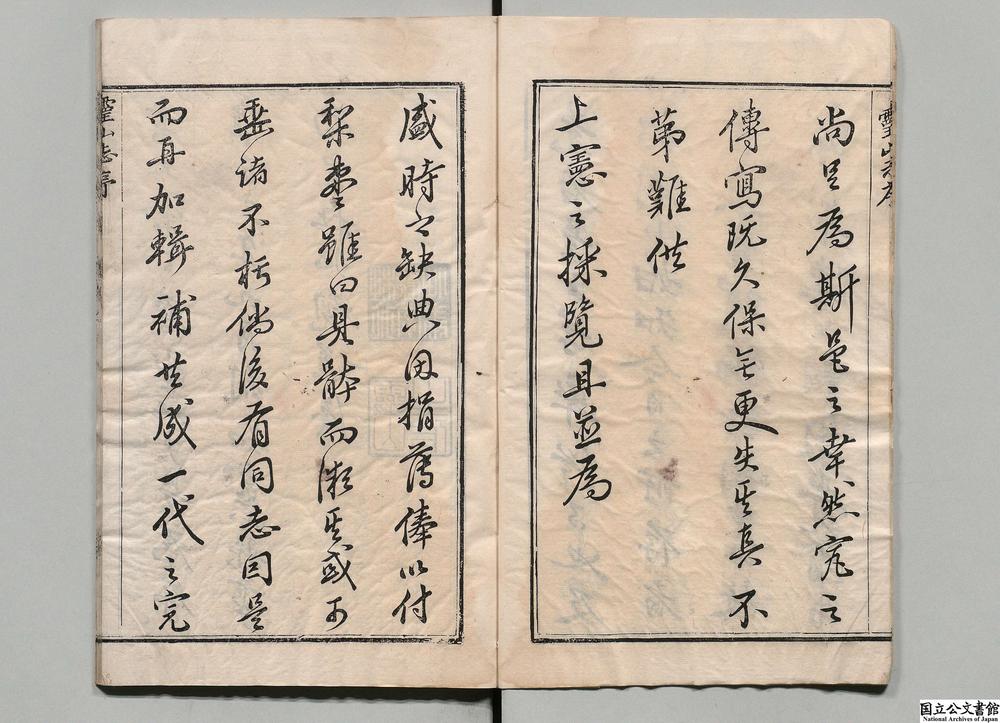 尚足為斯邑之幸然究之
傳寫既久保無更失其真不
第難供
上憲之採覽且並為
盛時之缺典因捐舊俸以付
梨棗雖曰具體而微其或可
垂諸不朽倘後有同志因是
而再加輯補共成一代之完
靈山志序
国立公文書館
National Archives of Japan